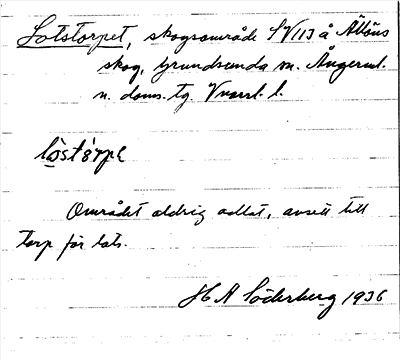 Lotstorpet, skogsområde SV113 å Ällöns
skog, Grundsunda sn. Ångerml.
n. doms. tg. Vnorrl. l.
lo̱stɔ̀rpe
Området aldrig odlat, avsett till
torp för lots.
H A Söderberg 1936